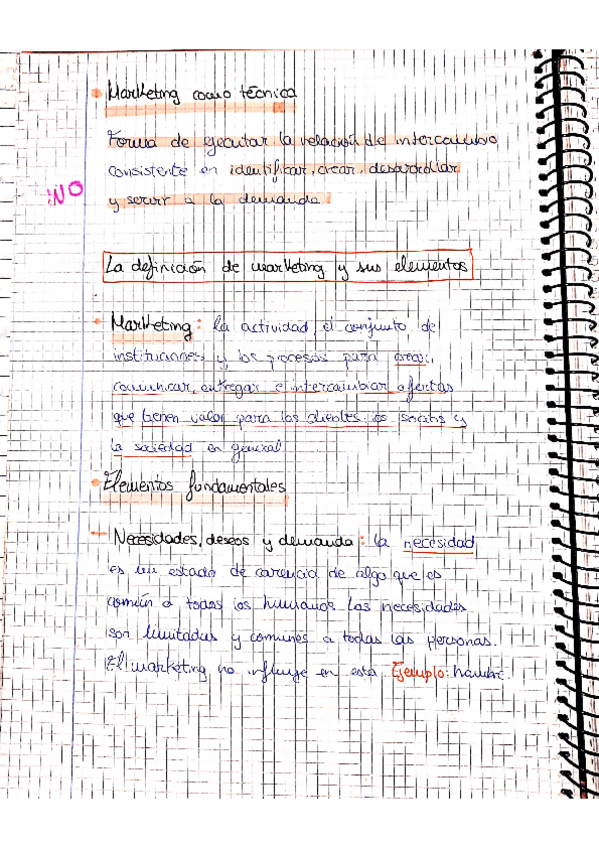 Marketing como técnica
Forma de ejecutar la relación de intercambio
consistente en identificar, crear, desarrollar
y servir a la demanda
NO
La definición de marketing y sus elementos
Marketing: la actividad, el conjunto de
instituciones y los procesos para crear,
comunicar, entregar e intercambiar ofertas
que tienen valor para los clientes, los socios y
la sociedad en general
Elementos fundamentales
Necesidades, deseos y demanda: la necesidad
es un estado de carencia de algo que es
común a todos los humanos las necesidades
son limitadas y comunes a todas las personas.
El marketing no influye en esta Ejemplo: hambre.